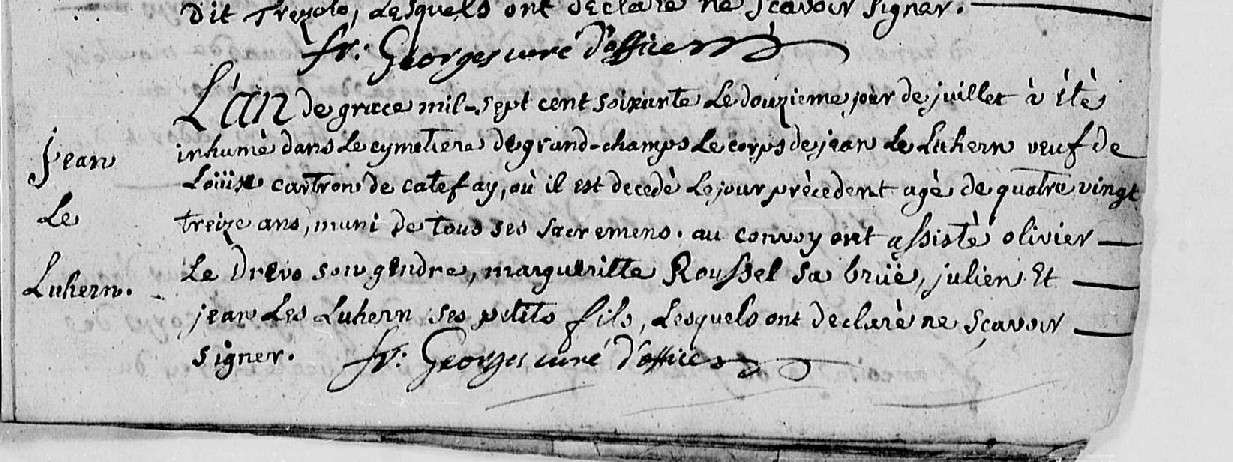 dit Trezolo, Lesquels ont declaré ne sçavoir signer.
fr: Georges curé d'office
L'an de grace mil-sept cent soixante Le douzieme jour de juillet à été
inhumé dans Le cymetiere de grand-champs Le corps de jean Le Luhern veuf de
Loüise cartron de catefay, où il est decedé Le jour précedent agé de quatre vingt
treize ans, muni de tous ses sacremens. au convoy ont assisté olivier
Le Drevo son gendre, margueritte Roussel sa bruë, julien Et
jean Les Luhern ses petits fils, Lesquels ont declaré ne sçavoir
signer. fr: Georges curé d'office
jean
Le
Luhern.